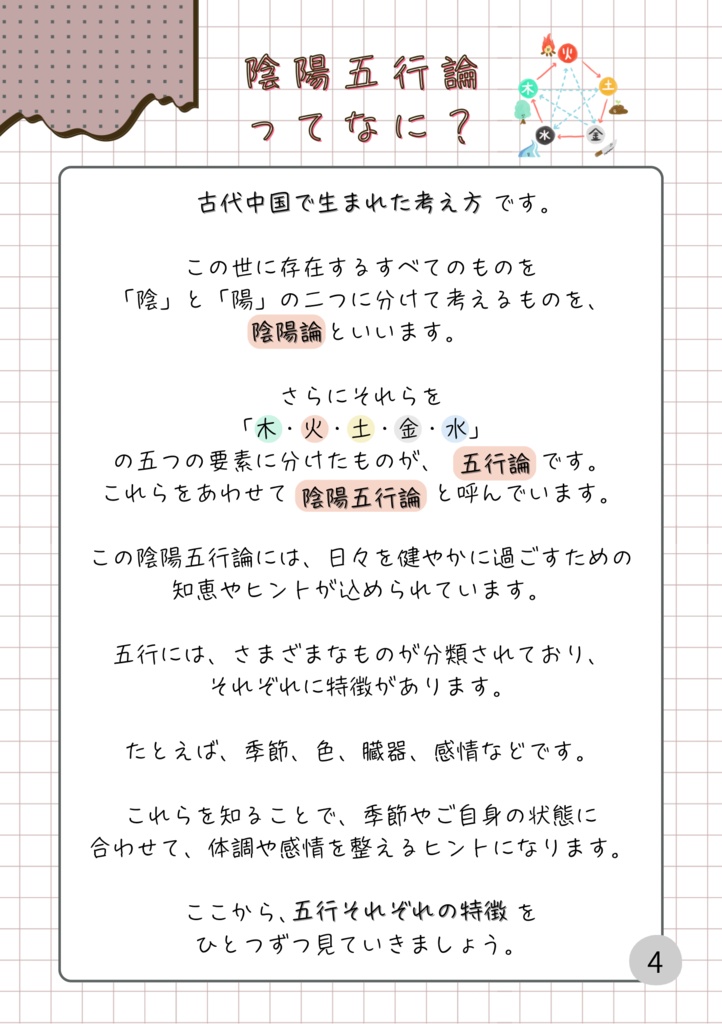 陰陽五行論
ってなに？
火
土
金
水
木
古代中国で生まれた考え方 です。
この世に存在するすべてのものを
「陰」と「陽」の二つに分けて考えるものを、
陰陽論といいます。
さらにそれらを
「木・火・土・金・水」
の五つの要素に分けたものが、 五行論 です。
これらをあわせて 陰陽五行論 と呼んでいます。
この陰陽五行論には、日々を健やかに過ごすための
知恵やヒントが込められています。
五行には、さまざまなものが分類されており、
それぞれに特徴があります。
たとえば、季節、色、臓器、感情などです。
これらを知ることで、季節やご自身の状態に
合わせて、体調や感情を整えるヒントになります。
ここから、五行それぞれの特徴 を
ひとつずつ見ていきましょう。
4